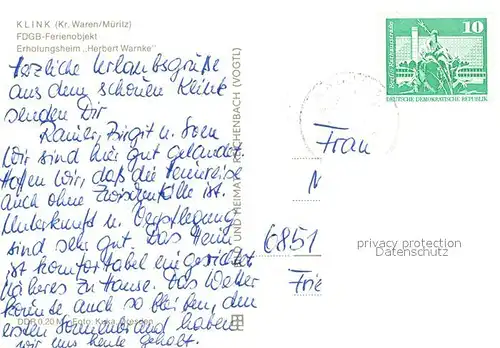 KLINK (Kr. Waren/Müritz)
FDGB-Ferienobjekt
Erholungsheim „Herbert Warnke"
Herzliche Urlaubsgrüße
aus dem schönen Klink
senden Dir
Rainer, Birgit u. Sven
Wir sind hier gut gelandet.
Hoffen wir, daß die Heimreise
auch ohne Zwischenfälle ist.
Unterkunft u. Verpflegung
sind sehr gut. Das Heim
ist komfortabel eingerichtet
Näheres zu Hause. Das Wetter
könnte auch so bleiben, den
ersten Sonnenbrand haben
wir uns heute geholt.
DDR 0,20 M Foto:
UND HEIMAT REICHENBACH (VOGTL)
10
DEUTSCHE DEMOKRATISCHE REPUBLIK
Frau
6851
Frie
privacy protection
Datenschutz